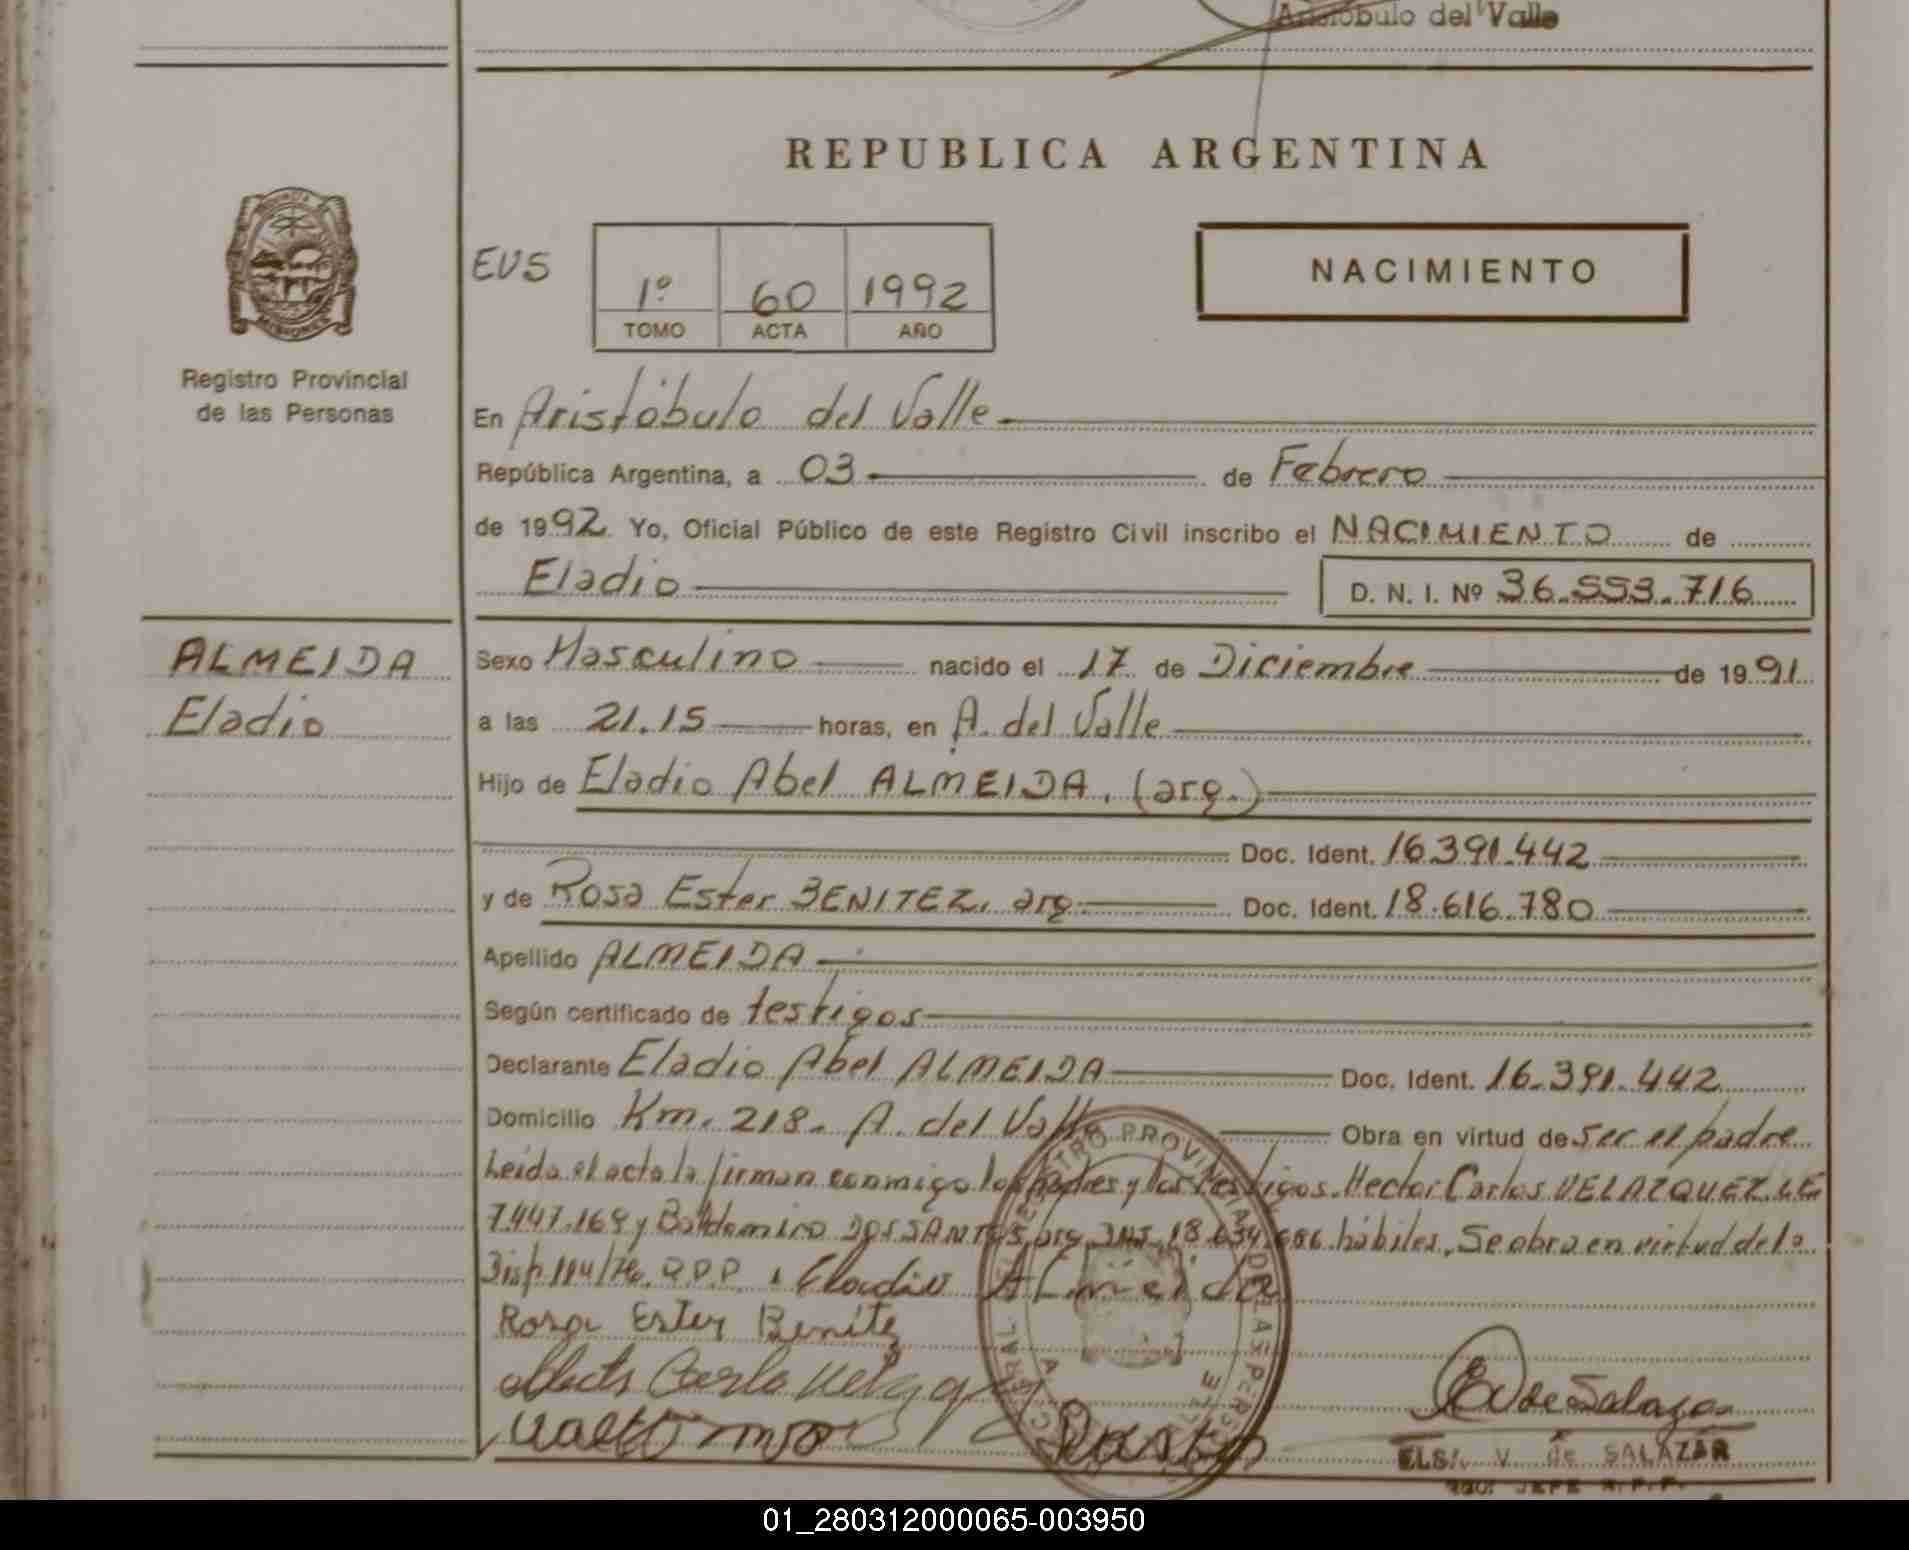 Aristóbulo del Valle
REPUBLICA ARGENTINA
EVS
1º 60 1992
TOMO ACTA AÑO
NACIMIENTO
MISIONES
Registro Provincial
de las Personas
En Aristóbulo del Valle
República Argentina, a 03 de Febrero
de 1992 Yo, Oficial Público de este Registro Civil inscribo el NACIMIENTO de
Eladio D. N. I. Nº 36.553.716
ALMEIDA
Eladio
Sexo Masculino nacido el 17 de Diciembre de 1991
a las 21.15 horas, en A. del Valle
Hijo de Eladio Abel ALMEIDA, (arg.)
Doc. Ident. 16.391.442
y de Rosa Ester BENITEZ, arg. Doc. Ident. 18.616.780
Apellido ALMEIDA
Según certificado de testigos
Declarante Eladio Abel ALMEIDA Doc. Ident. 16.391.442
Domicilio Km. 218. A. del Valle Obra en virtud de ser el padre
Leída el acta la firman conmigo los padres y los testigos. Hector Carlos VELAZQUEZ LE
7.447.169 y Baldomiro DOS SANTOS, arg DNI 18.634.686 hábiles, Se obra en virtud de la
Disp. 114/76. R.P.P. Eladio Almeida
Rosa Ester Benitez
EV de Salazar
ELSA V. de SALAZAR
JEFE R.P.P.
REGISTRO PROVINCIAL DE LAS PERSONAS
01_280312000065-003950